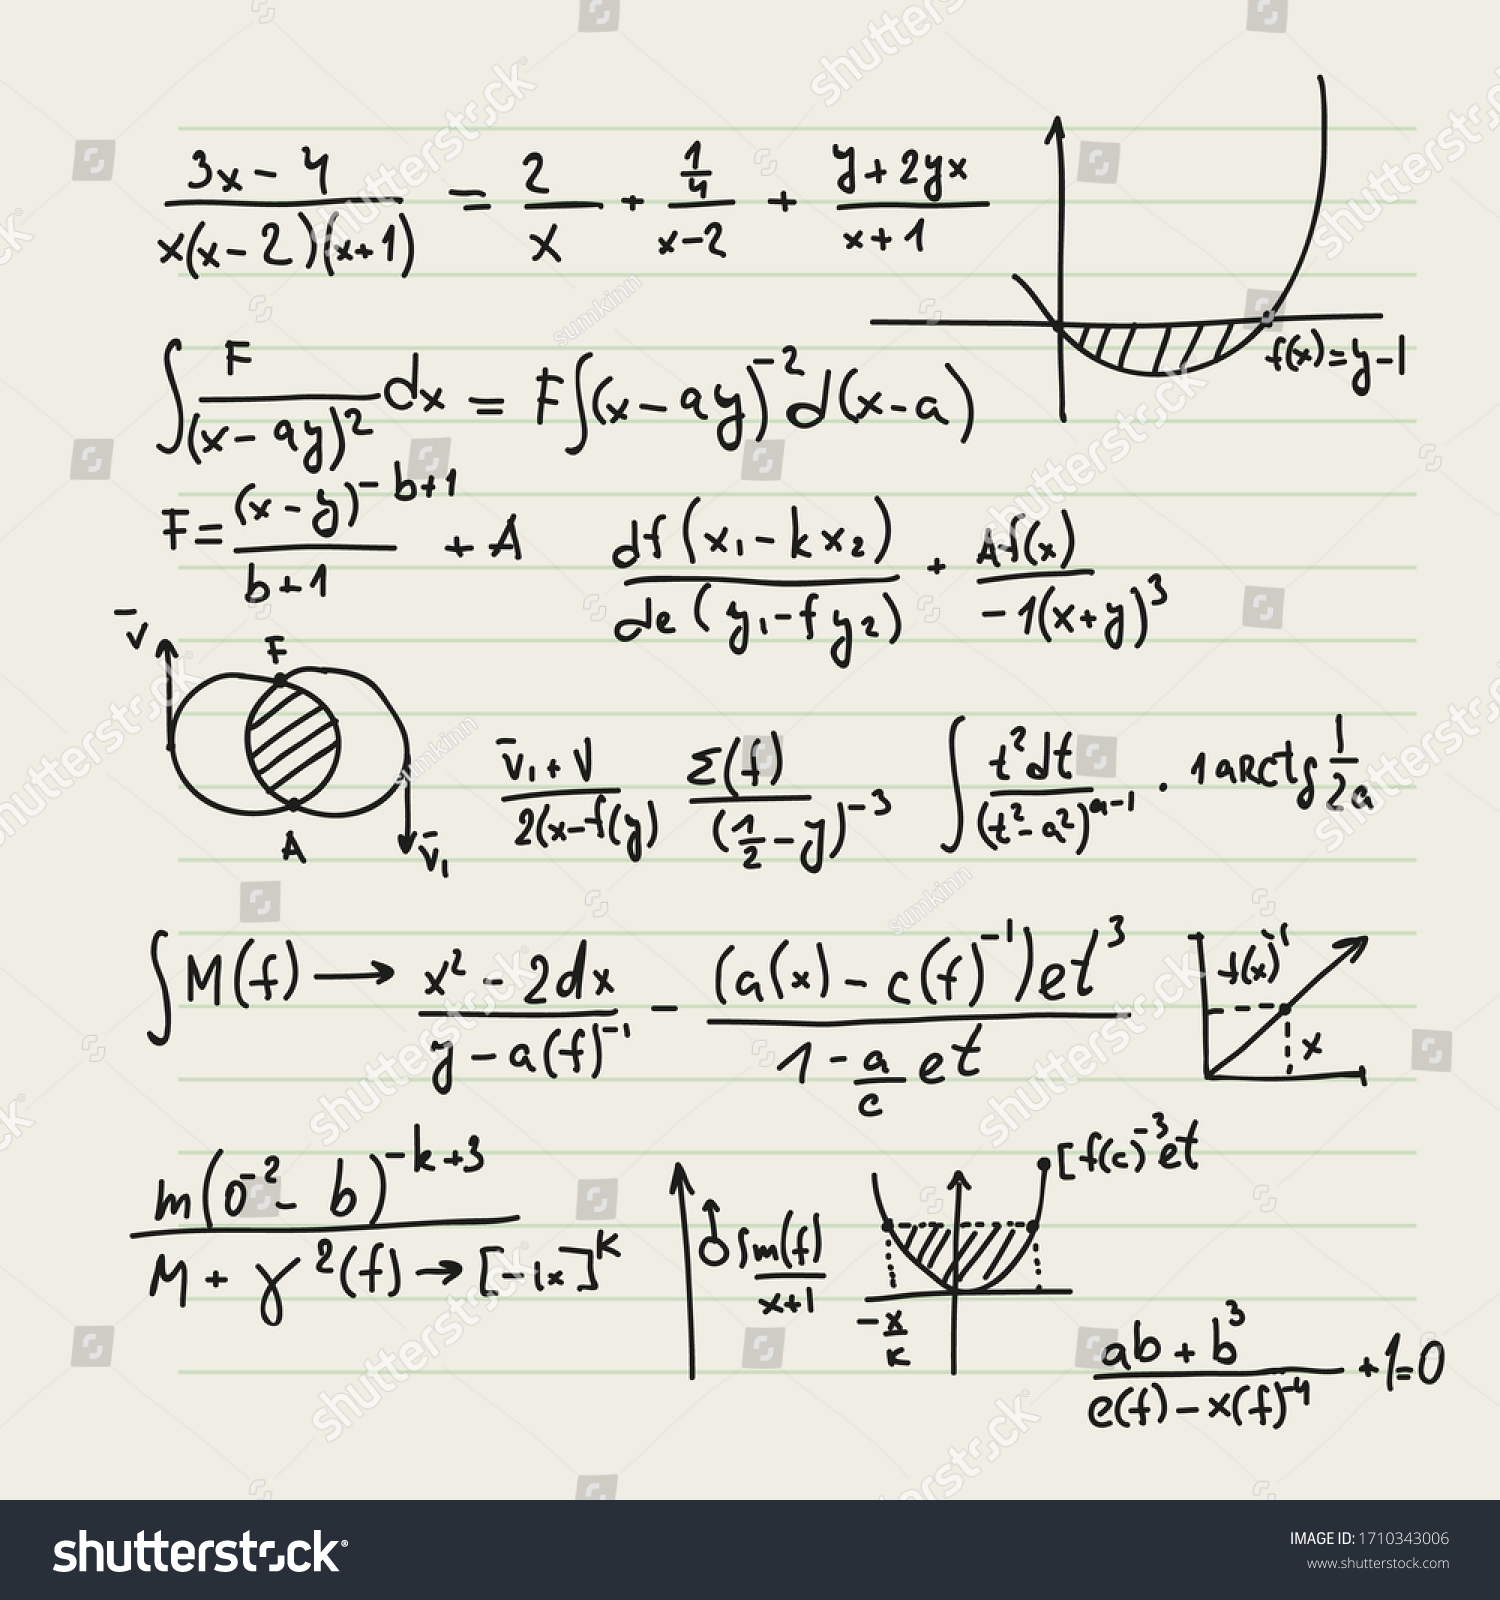 (3x - 4)/(x(x - 2)(x+1)) = 2/x + (1/4)/(x-2) + (y + 2yx)/(x + 1)
f(x) = y - 1
∫ F/(x - ay)² dx = F∫(x - ay)⁻² d(x - a)
F = (x - y)^(-b+1)/(b+1) + A
df(x₁ - kx₂)/de(y₁ - fy₂) + Af(x)/(-1(x+y)³)
v̄
F
A
v̄₁
(v̄₁ + v)/(2(x-f(y)) Σ(f)/(1/2 - y)⁻³ ∫ t²dt/(t² - a²)^(a-1) · 1 arctg 1/2a
∫ M(f) → (x² - 2dx)/(y - a(f)⁻¹) - ((a(x) - c(f)⁻¹)et³)/(1 - a/c et)
f(x)⁻¹
x
m(0⁻² - b)^(-k+3)/(M + γ²(f) → [-1x]^k
∫m(f)/(x+1)
[f(c)⁻³et
-x/k
(ab + b³)/(e(f) - x(f)⁻⁴) + 1 = 0
shutterstock
IMAGE ID: 1710343006
www.shutterstock.com
sumkinn